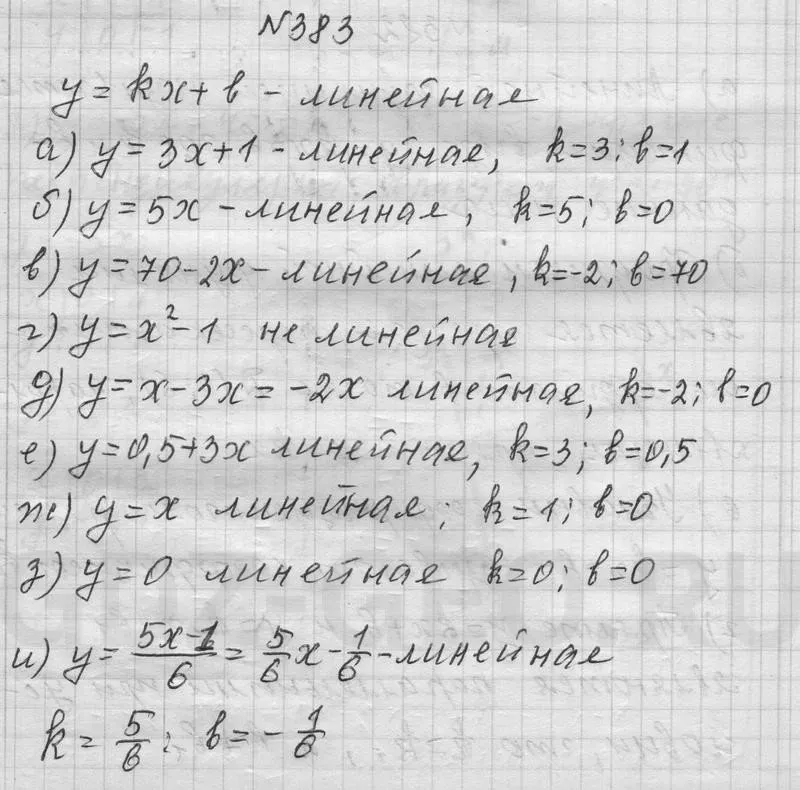 №383
y = kx + b - линейная
а) y = 3x+1 - линейная, k=3; b=1
б) y = 5x - линейная, k=5; b=0
в) y = 70-2x - линейная, k=-2; b=70
г) y = x² - 1 не линейная
д) y = x - 3x = -2x линейная, k=-2; b=0
е) y=0,5+3x линейная, k=3; b=0,5
ж) y=x линейная; k=1; b=0
з) y=0 линейная k=0; b=0
и) y = (5x-1)/6 = 5/6 x - 1/6 - линейная
k = 5/6; b = - 1/6